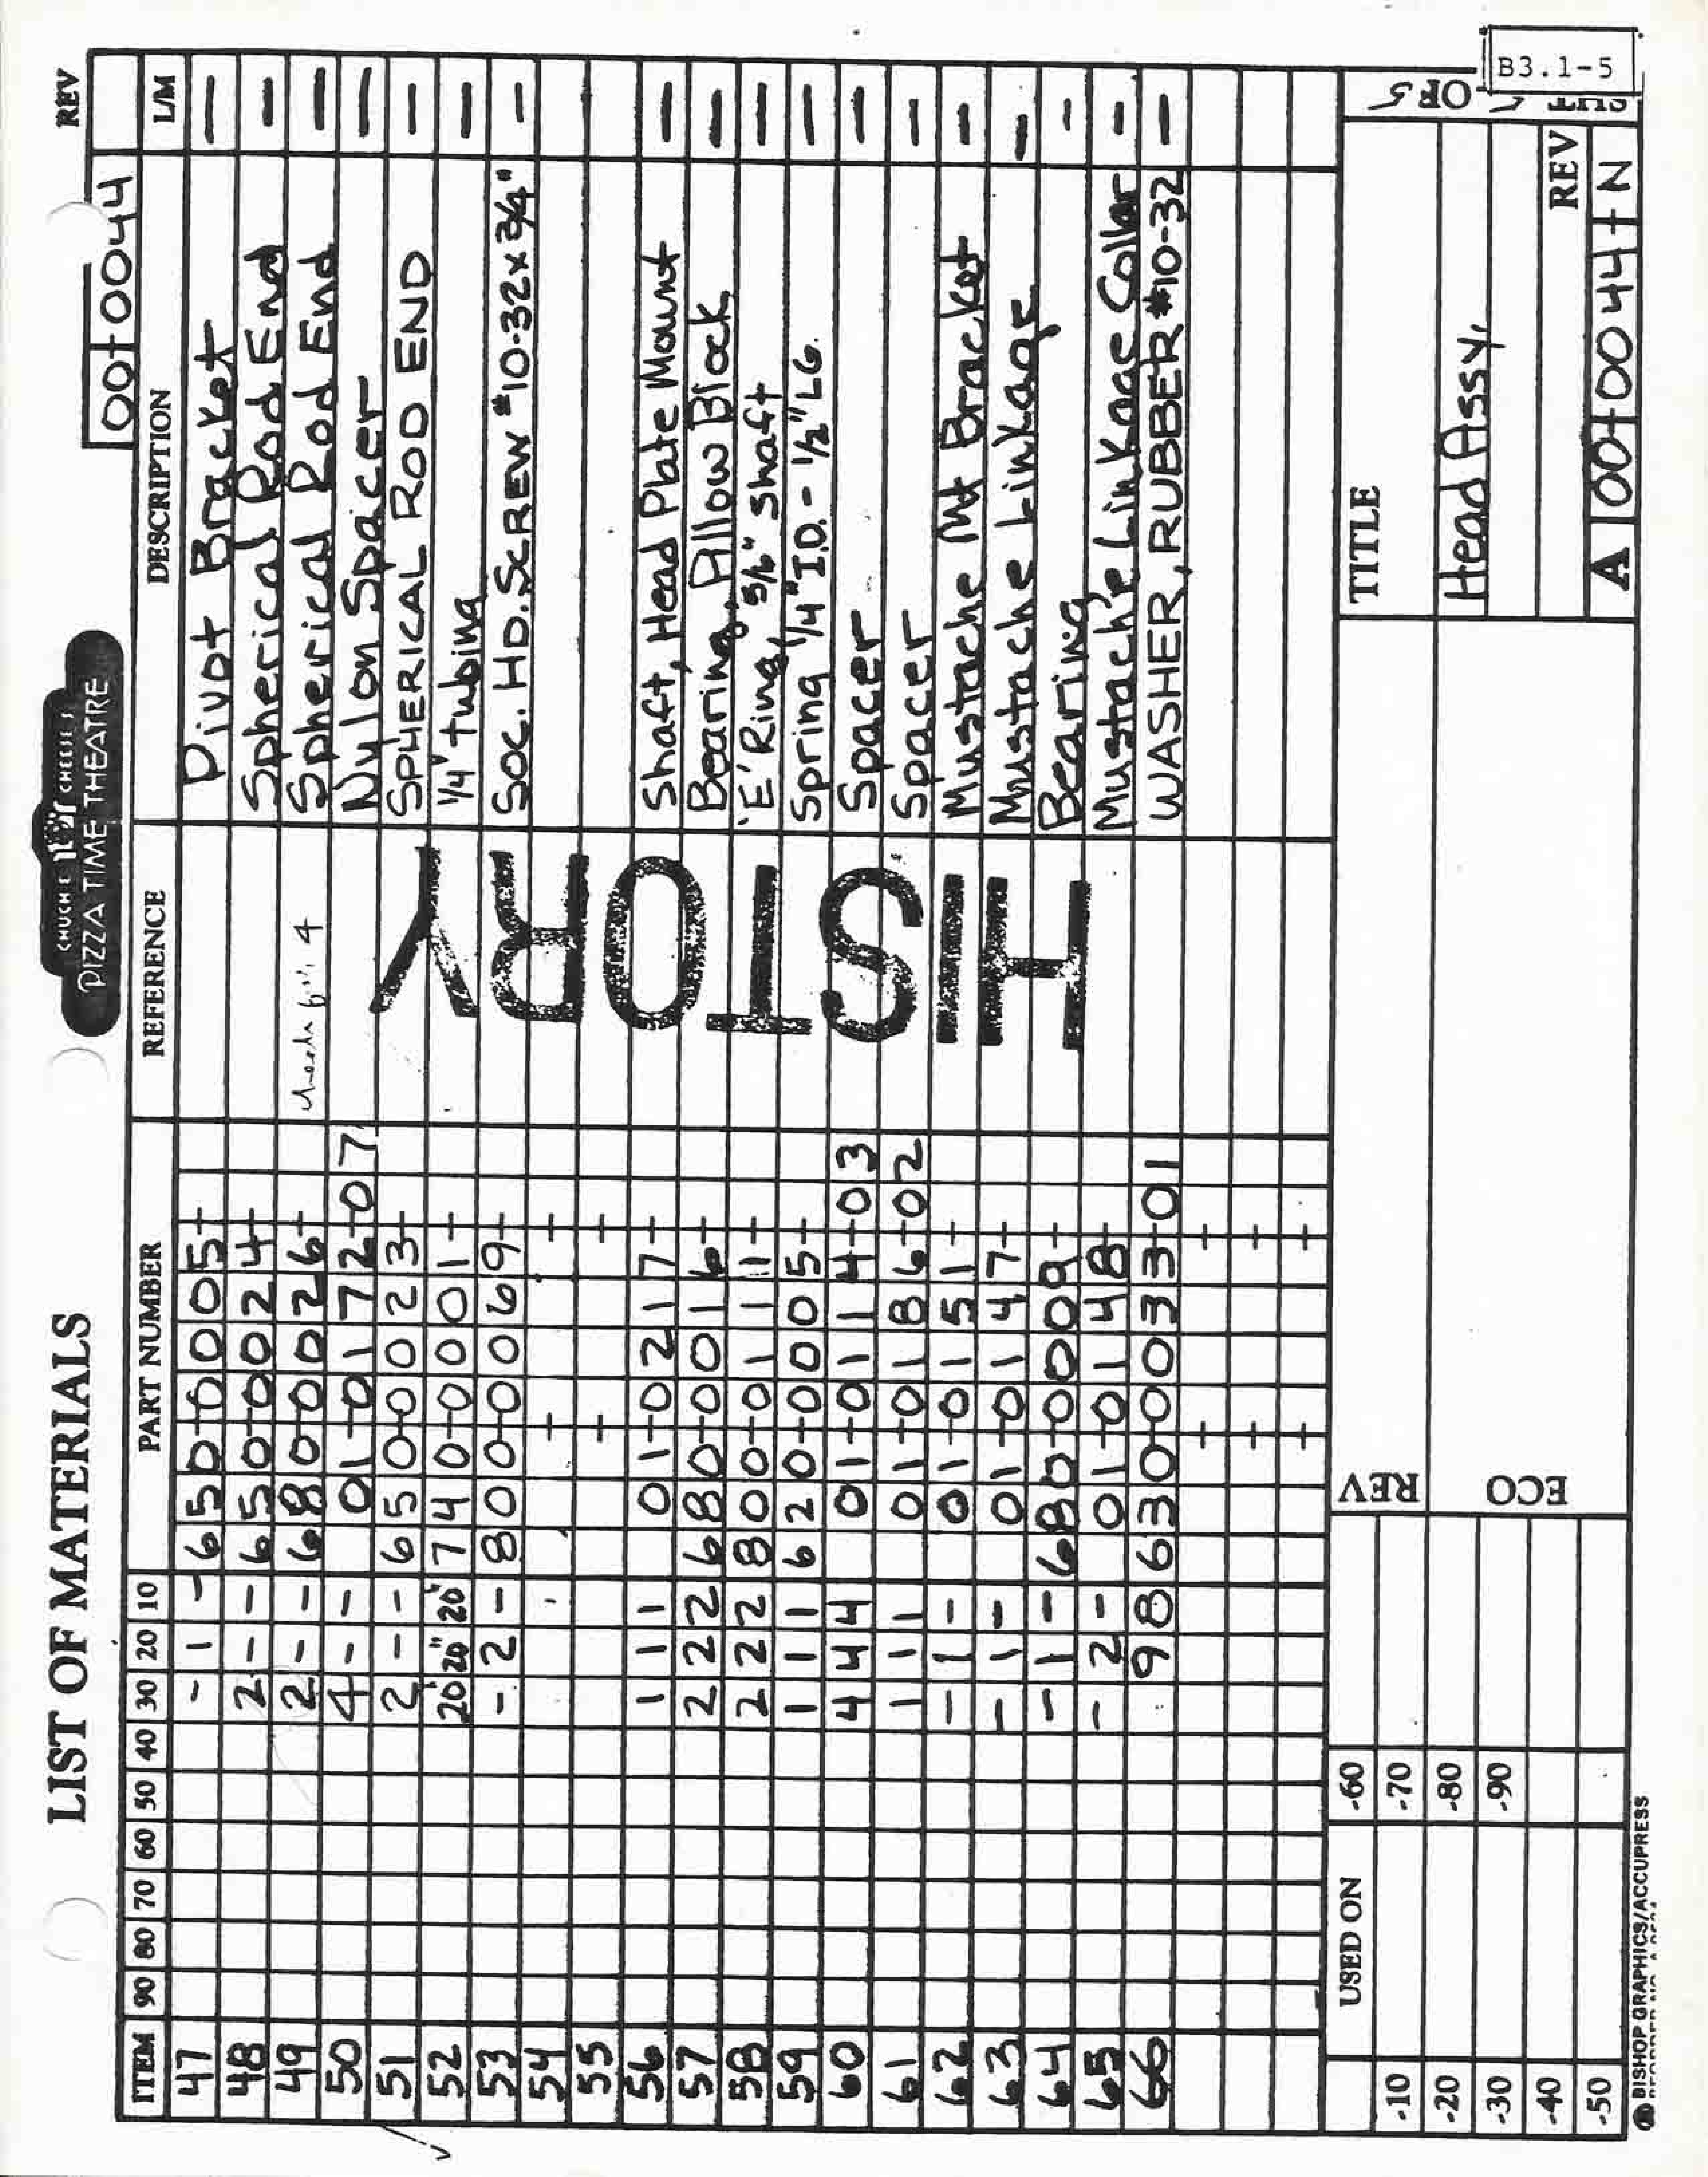 LIST OF MATERIALS
CHUCK E. CHEESE'S
PIZZA TIME THEATRE
REV
00+0044
ITEM 90 80 70 60 50 40 30 20 10 PART NUMBER REFERENCE DESCRIPTION L/M
47 - 1 - 650+0005+ Pivot Bracket —
48 2 - - 650+0024+ Spherical Rod End —
49 2 - - 680+0026+ Spherical Rod End —
50 4 - - 01+0172+07 Nylon Spacer —
51 2 - - 650+0023+ SPHERICAL ROD END —
52 20" 20" 20" 740+0001+ 1/4" tubing —
53 - 2 - 800+0069+ SOC. HD. SCREW #10-32x3/4" —
54 + +
55 + +
56 1 1 1 01+0217+ Shaft, Head Plate Mount —
57 2 2 2 680+0016+ Bearing, Pillow Block —
58 2 2 2 800+0111+ 'E' Ring, 5/16" Shaft —
59 1 1 1 620+0005+ Spring 1/4" I.D. - 1/2" LG. —
60 4 4 4 01+0114+03 Spacer —
61 1 1 1 01+0186+02 Spacer —
62 - 1 - 01+0151+ Mustache Mt Bracket —
63 - 1 - 01+0147+ Mustache Linkage —
64 - 1 - 680+0009+ Bearing —
65 - 2 - 01+0148+ Mustache Linkage Collar —
66 9 8 630+0033+01 WASHER, RUBBER #10-32 —
+ +
+ +
+ +
HISTORY
USED ON REV TITLE
-10 -60
-20 -70
-30 -80
-40 -90
-50
ECO
Head Assy.
REV
A 100+0044+ N
SHT 5 OF 5
B3.1-5
BISHOP GRAPHICS/ACCUPRESS